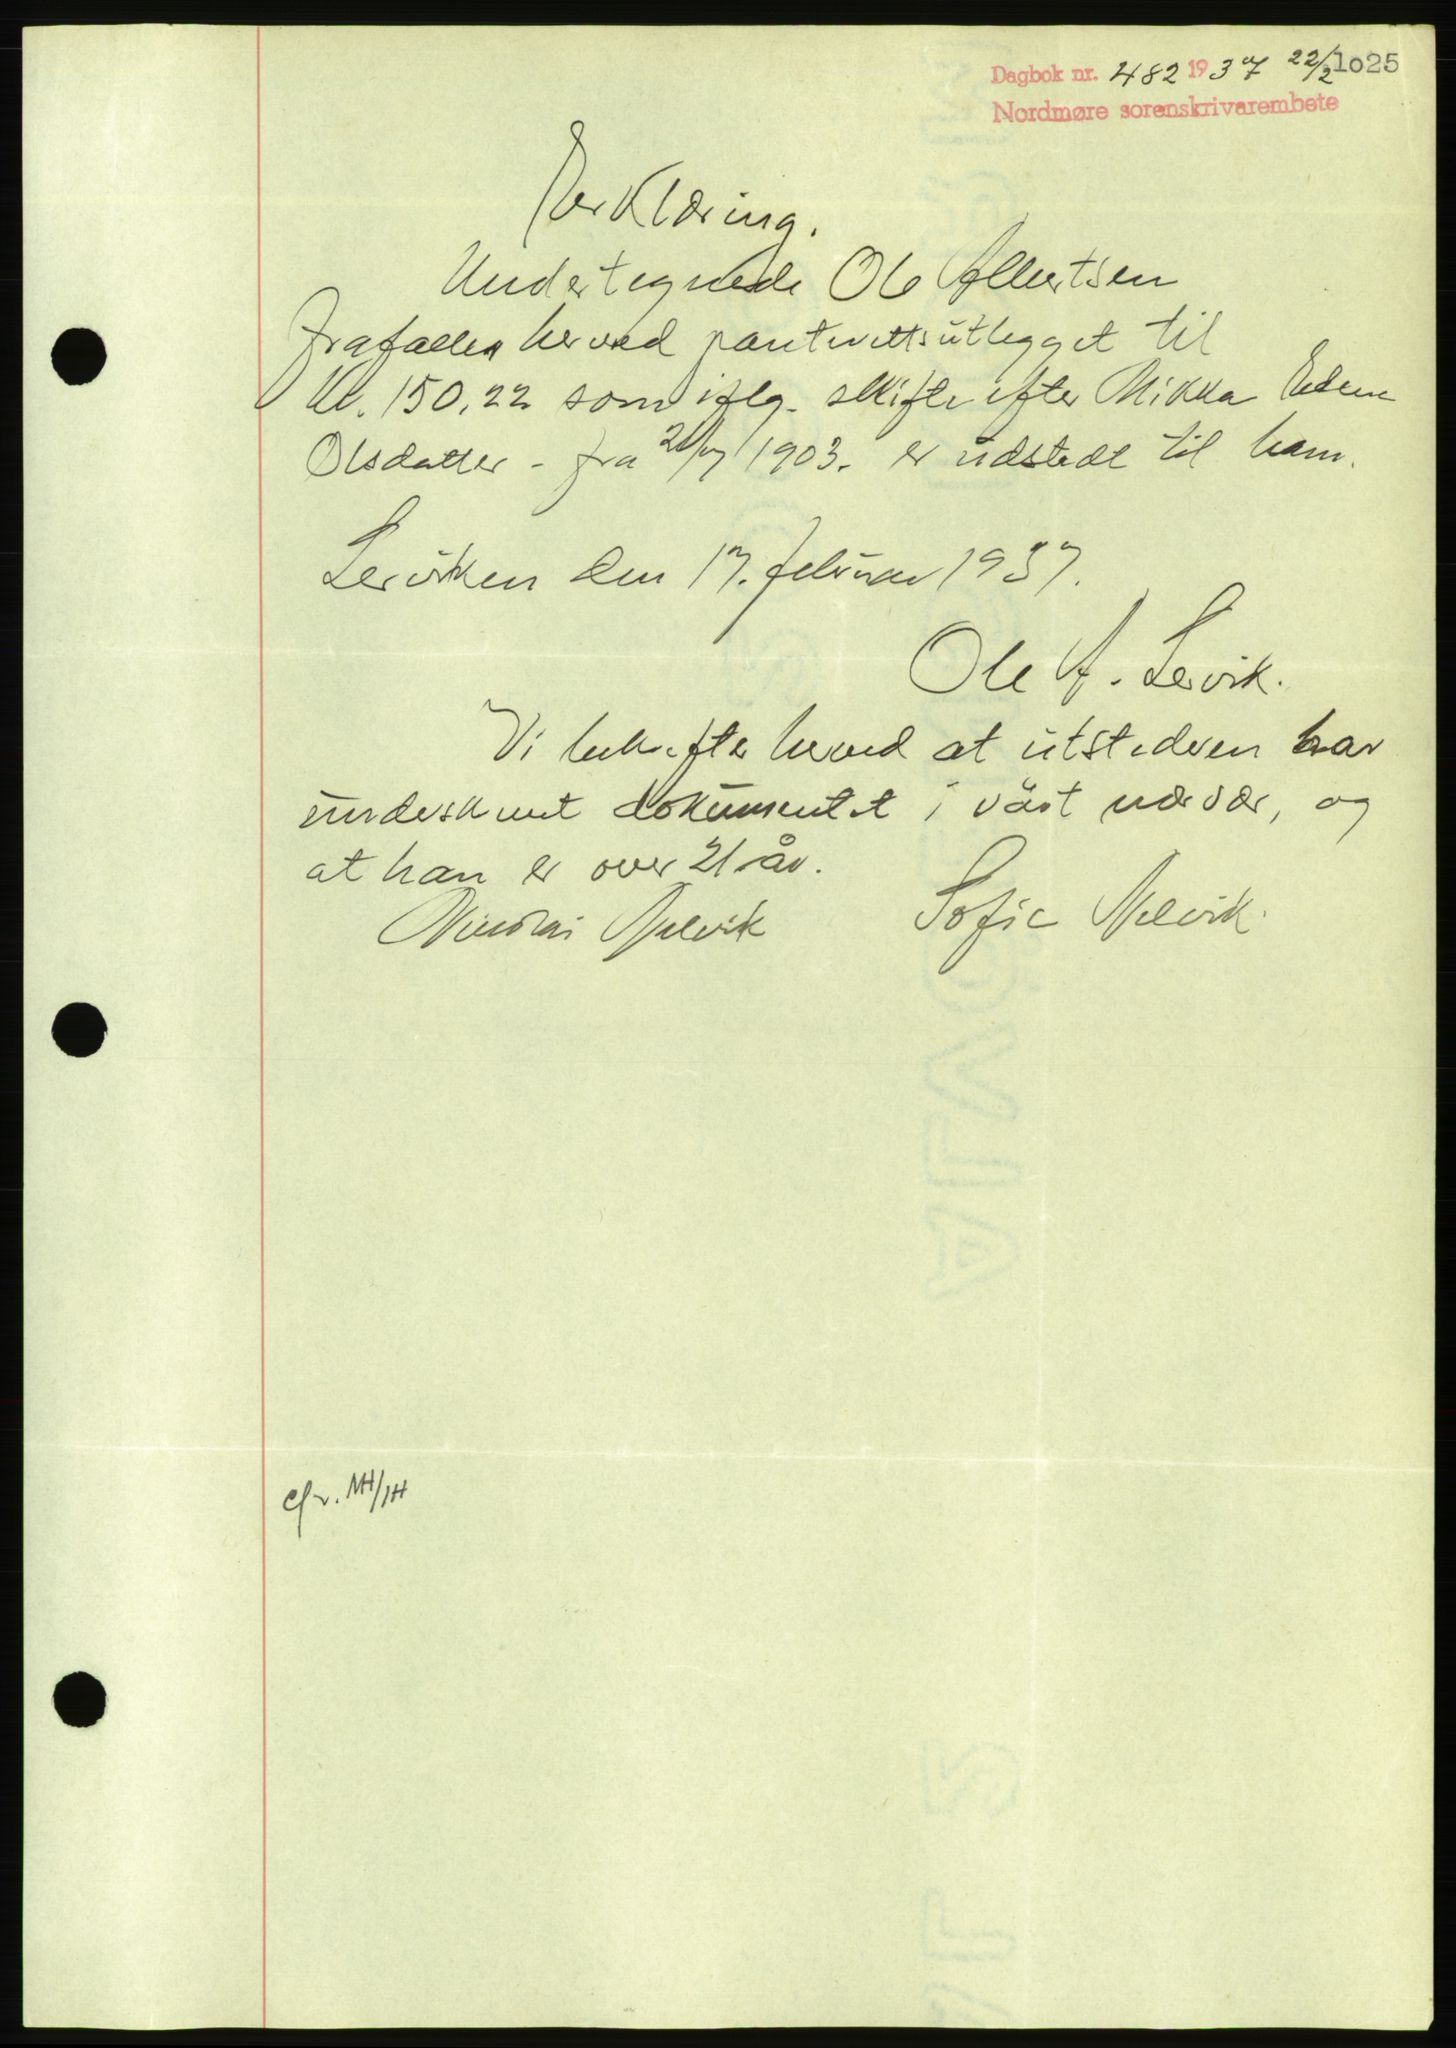 Dagbok nr. 482 1937 22/2 1025
Nordmøre sorenskrivarembete
Erklæring.
Undertegnede Ole Albertsen
frafaller herved panterettsutlegget til
Kr. 150,22 som iflg. skifte efter Mikka
Olsdatter - fra 21/7 1903. er udstedt til ham.
Lerviken den 17. februar 1937.
Ole A. Lervik.
Vi bekrefter herved at utstederen har
underskrevet dokumentet i vårt nærvær, og
at han er over 21 år.
Nicolai Melvik Sofie Melvik.
cfr. MH/IH